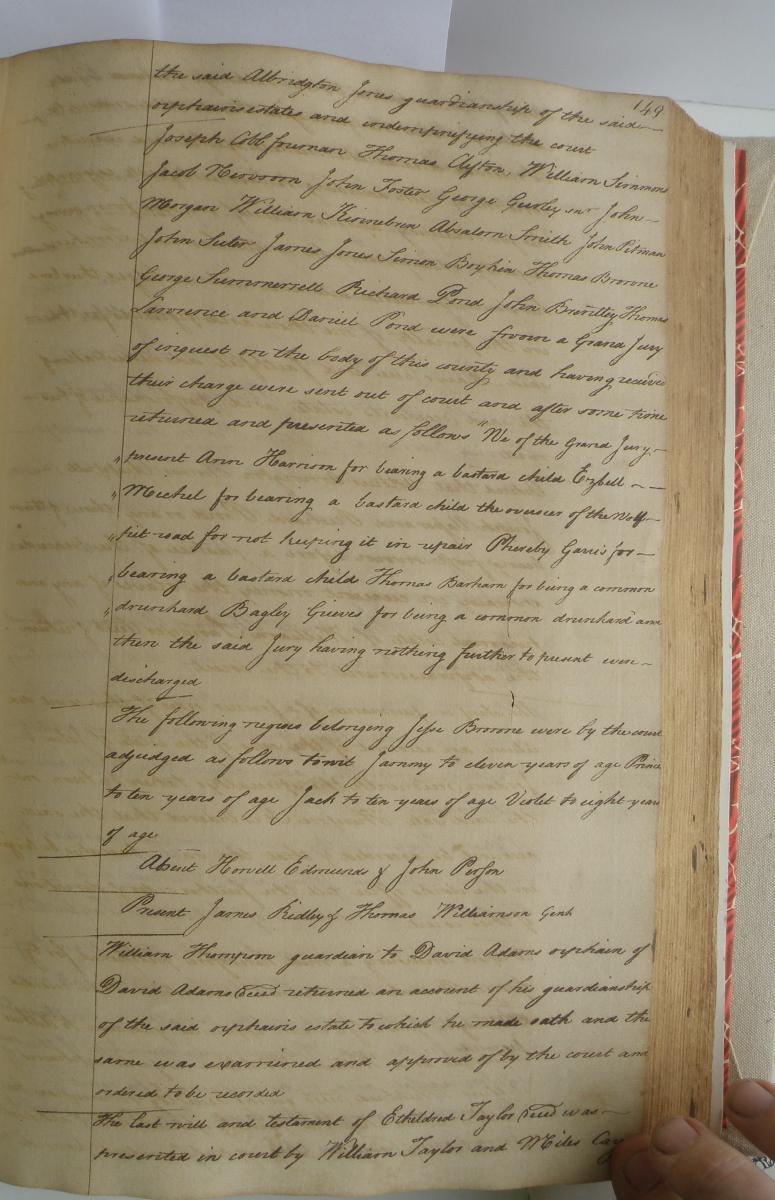 149
the said Albridgton Jones guardianship of the said
orphains estates and indempnifying the court
Joseph Cobb foreman Thomas Clifton, William Simmons
Jacob Newsom John Foster George Gurley snr John
Morgan William Kinnebrew Absalom Smith John Pitman
John Suter James Jones Simon Boykin Thomas Browne
George Summerrell Richard Pond John Brantley Thomas
Lawrence and Daniel Pond were sworn a Grand Jury
of inquest on the body of this county and having receive
their charge were sent out of court and after some time
returned and presented as follows "We of the Grand Jury
" present Ann Harrison for bearing a bastard child Ezbell
" Michel for bearing a bastard child the overseer of the Wolf
" pit road for not keeping it in repair Phereby Garris for
" bearing a bastard child Thomas Barham for being a common
" drunkard Bagley Grieves for being a common drunkard" and
then the said Jury having nothing further to present were
discharged
The following negroes belonging Jesse Browne were by the court
adjudged as follows towit Jammy to eleven years of age Prince
to ten years of age Jack to ten years of age Violet to eight years
of age
Absent Howell Edmunds & John Person
Present James Ridley & Thomas Williamson Gent
William Thompson guardian to David Adams orphain of
David Adams deced returned an account of his guardianship
of the said orphains estate to which he made oath and the
same was examined and approved of by the court and
ordered to be recorded
The last will and testament of Etheldred Taylor deced was
presented in court by William Taylor and Miles Cary